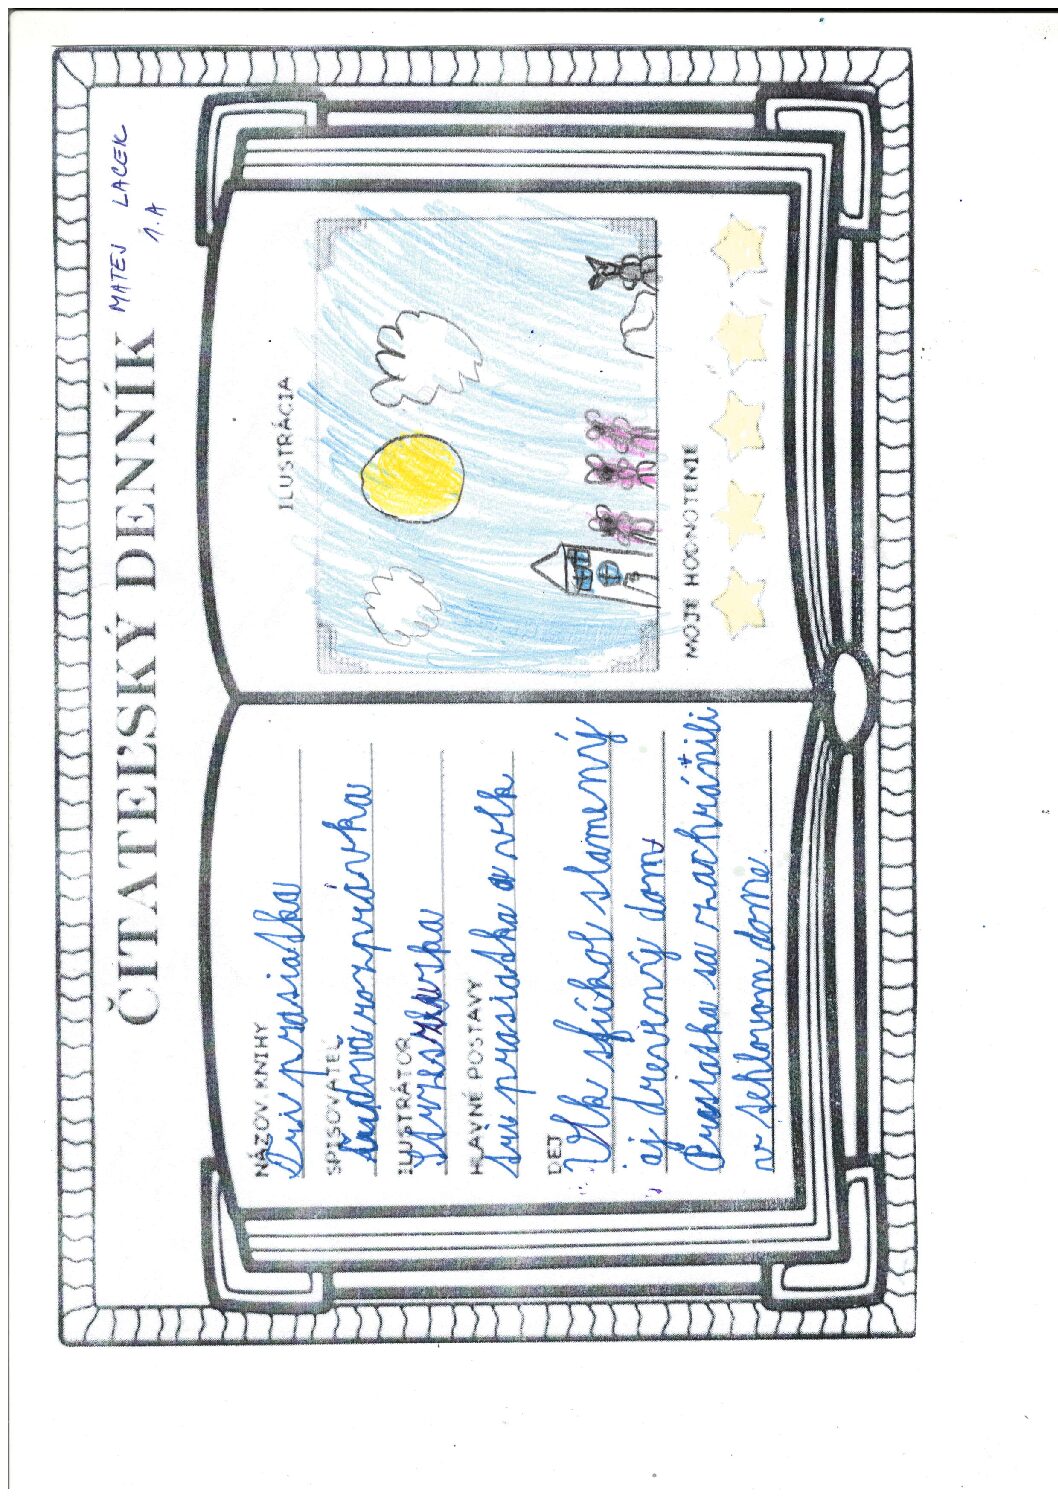 ČITATEĽSKÝ DENNÍK
MATEJ LACEK
1.A
NÁZOV KNIHY
Tri prasiatka
SPISOVATEĽ
ľudová rozprávka
ILUSTRÁTOR
HLAVNÉ POSTAVY
tri prasiatka a vlk
DEJ
Vlk sfúkol slamený
aj drevený dom
Prasiatka sa zachránili
v tehlovom dome.
ILUSTRÁCIA
MOJE HODNOTENIE